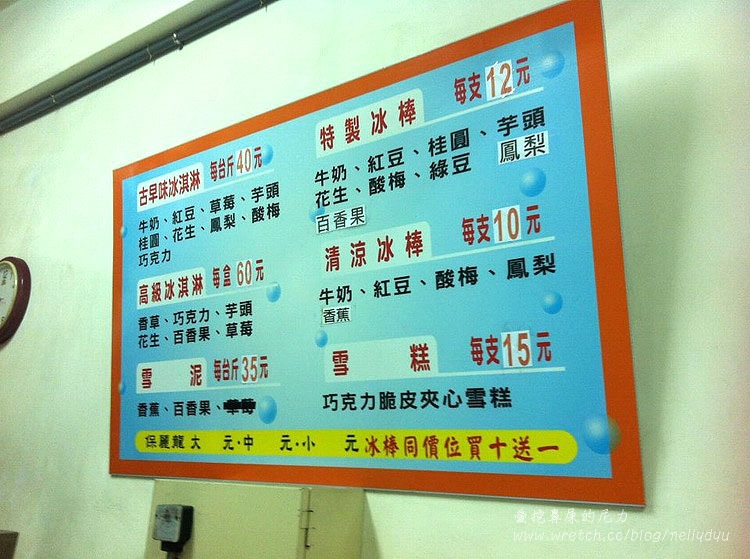 古早味冰淇淋 每台斤40元
牛奶、紅豆、草莓、芋頭
桂圓、花生、鳳梨、酸梅
巧克力
高級冰淇淋 每盒60元
香草、巧克力、芋頭
花生、百香果、草莓
雪泥 每台斤35元
香蕉、百香果、
特製冰棒 每支12元
牛奶、紅豆、桂圓、芋頭
花生、酸梅、綠豆 鳳梨
百香果
清涼冰棒 每支10元
牛奶、紅豆、酸梅、鳳梨
香蕉
雪糕 每支15元
巧克力脆皮夾心雪糕
保麗龍大 元·中 元·小 元 冰棒同價位買十送一
愛挖鼻屎的尼力
www.wretch.cc/blog/nellydyu